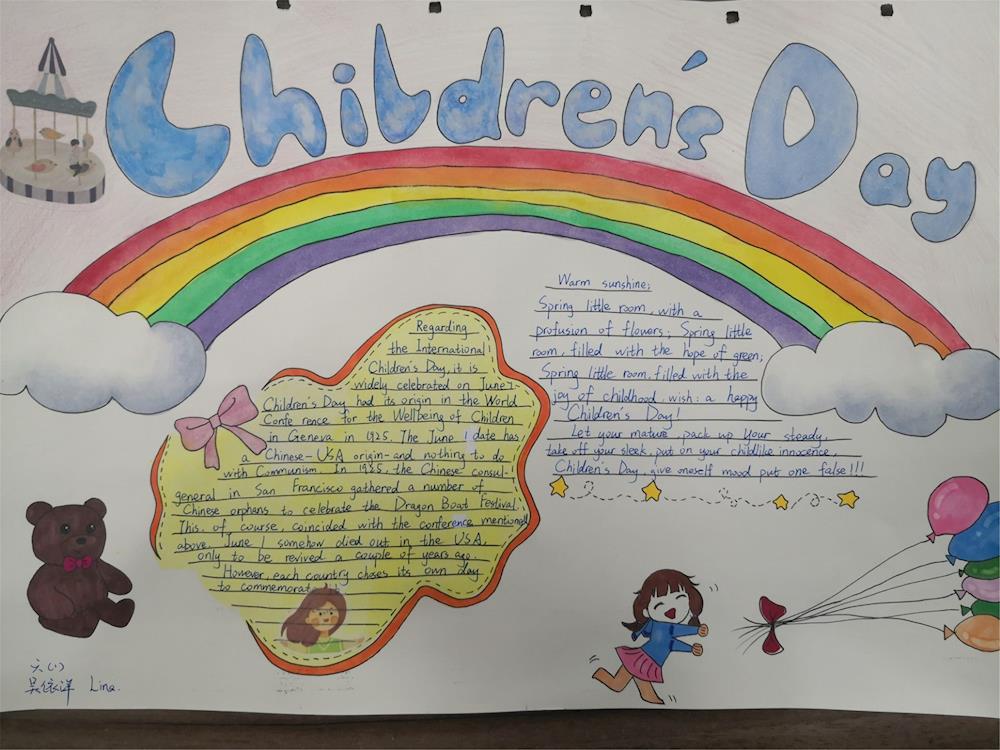 Children's Day
Regarding
the International
Children's Day, it is
widely celebrated on June 1.
Children's Day had its origin in the World
Confe rence for the Wellbeing of Children
in Geneva in 1925. The June 1 date has
a Chinese-USA origin-and nothing to do
with Communism. In 1925, the Chinese consul-
general in San Francisco gathered a number of
Chinese orphans to celebrate the Dragon Boat Festival.
This, of course, coincided with the conference mentioned
above. June 1 somehow died out in the USA,
only to be revived a couple of years ago.
However, each country choses its own day
to commemorat
Warm sunshine;
Spring little room, with a
profusion of flowers; Spring little
room, filled with the hope of green;
Spring little room, filled with the
joy of childhood, wish: a happy
Children's Day!
Let your mature, pack up your steady,
take off your sleek, put on your childlike innocence,
Children's Day, give oneself mood put one false!!!
六(1)
吴依洋 Lina.